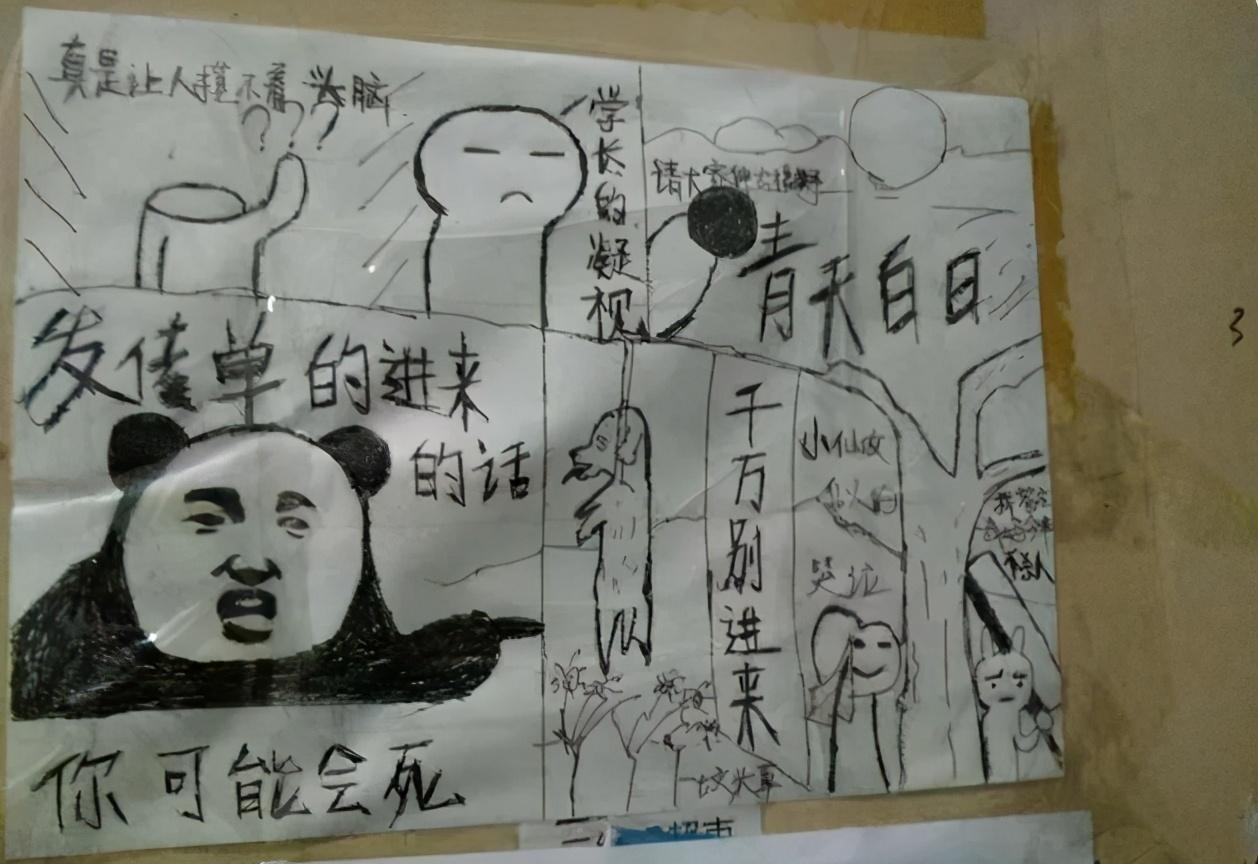 真是让人摸不着头脑
???
学长的凝视
请大家
青天白日
发传单的进来
的话
你可能会死
千万别进来
小仙女
似的
哭泣
3